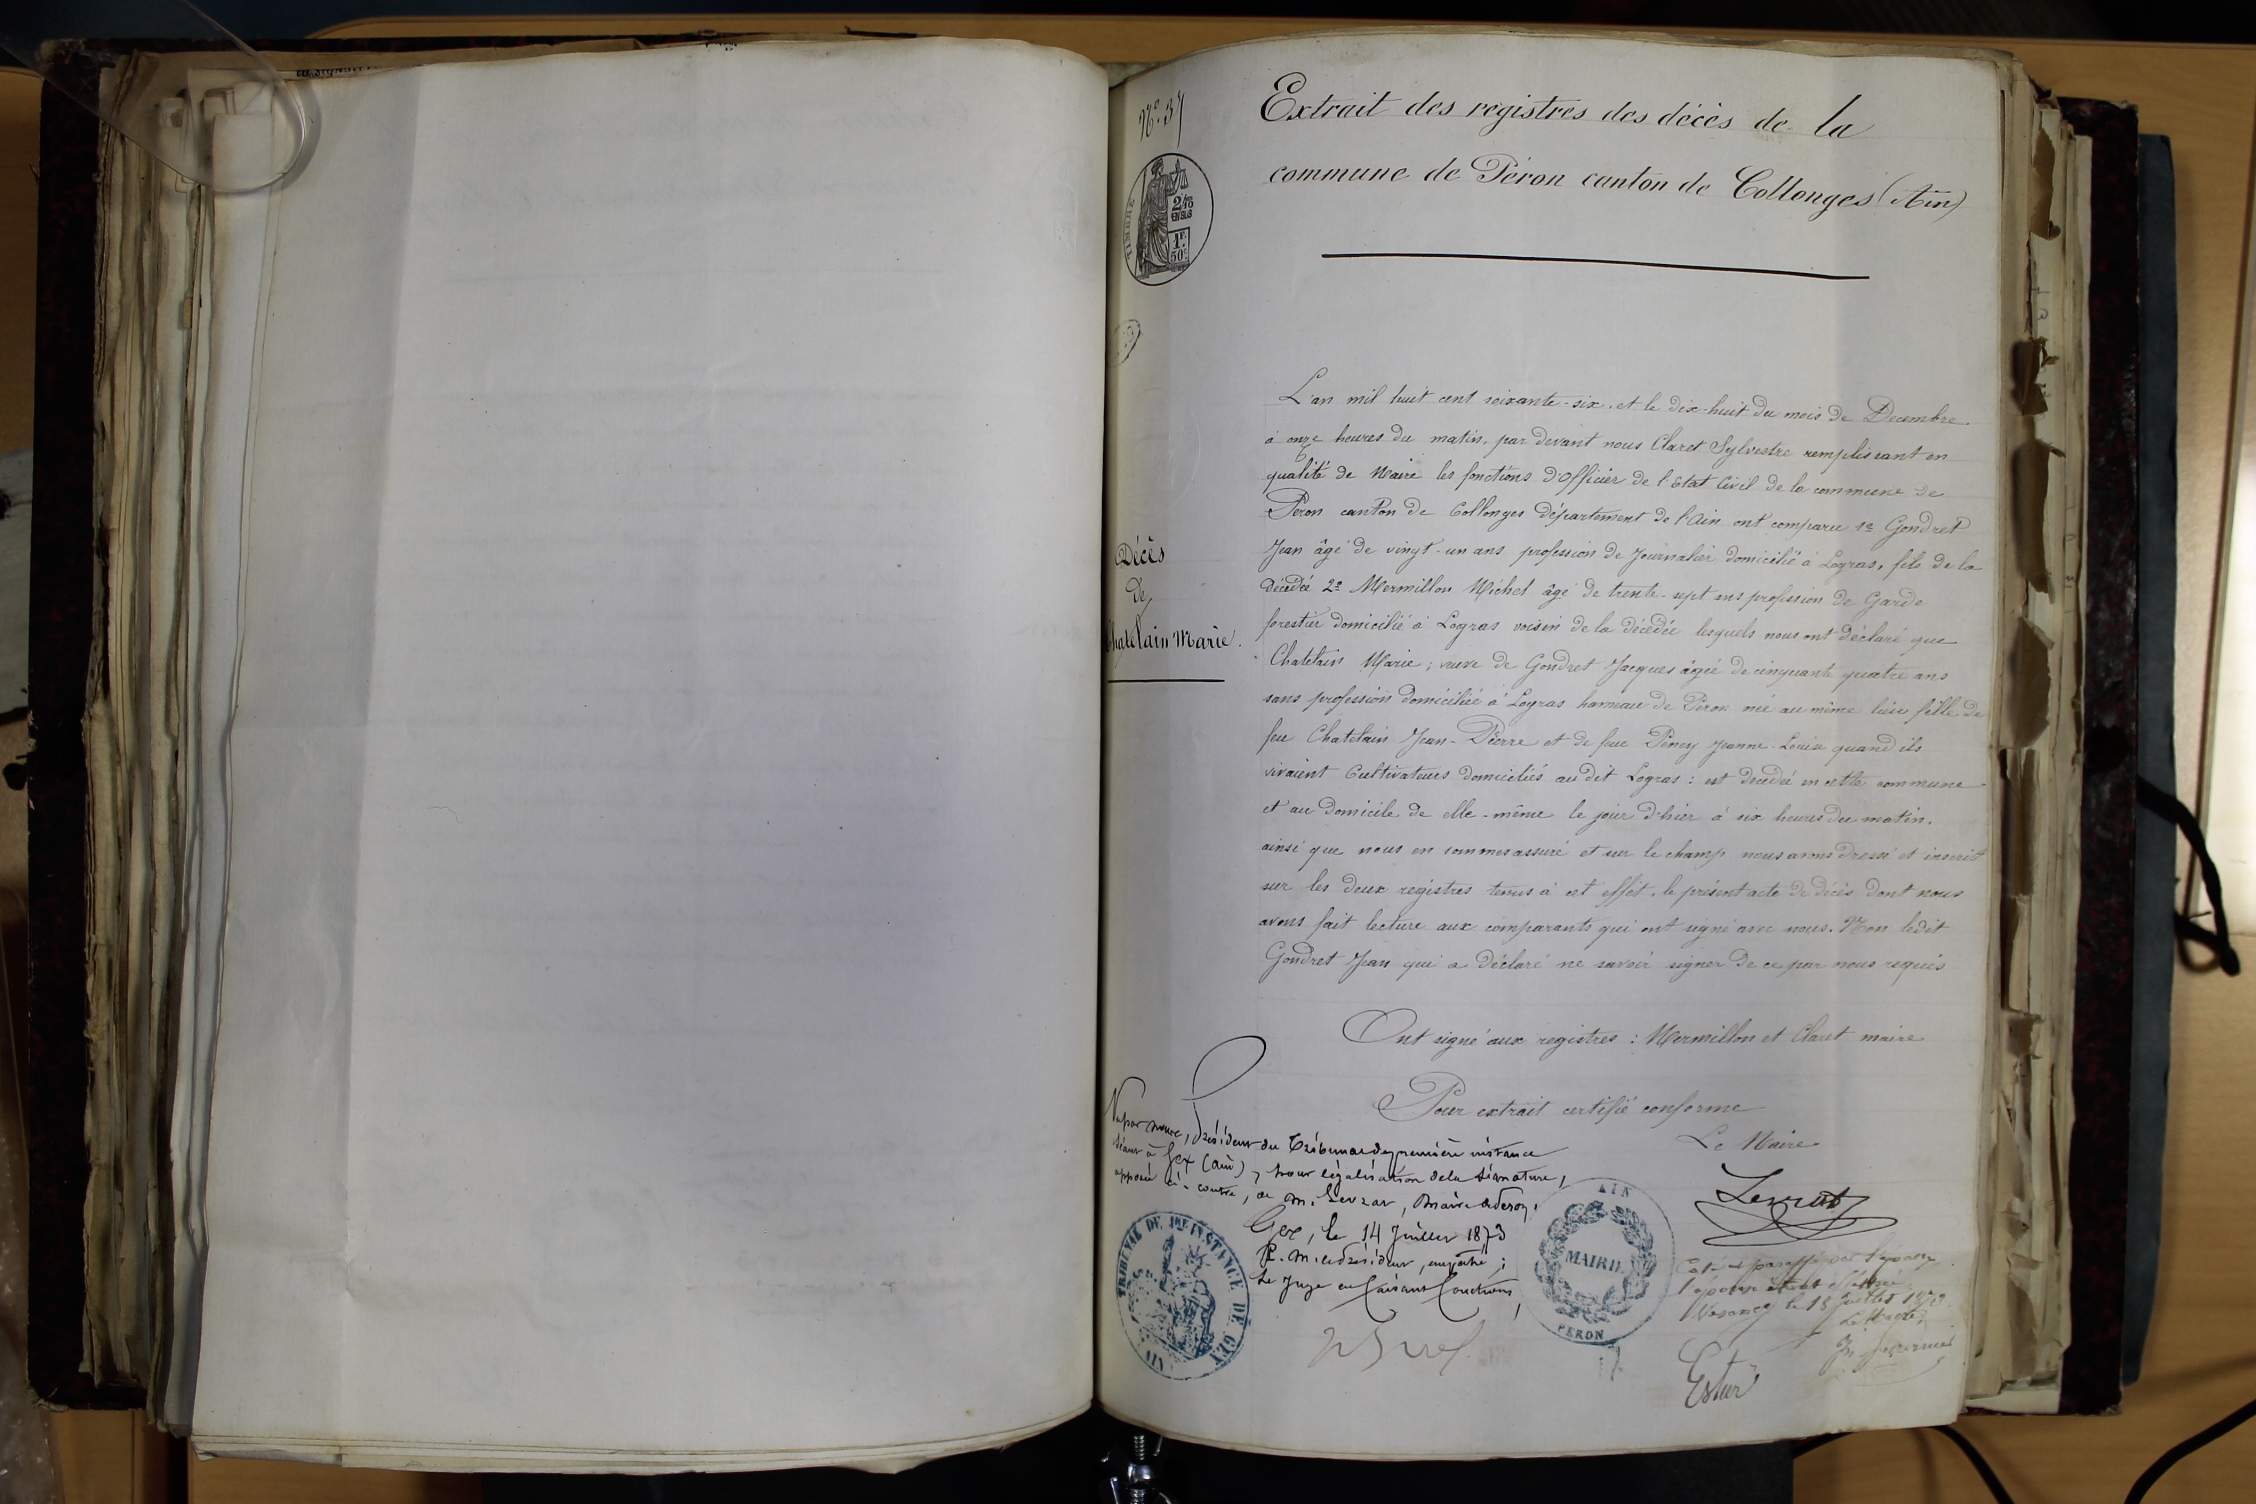 N° 37
Extrait des registres des décès de la
commune de Péron canton de Collonges (Ain)
TIMBRE
2/10
EN SUS
1F.
50c
L'an mil huit cent soixante-six, et le dix-huit du mois de Decembre
à onze heures du matin, par devant nous Claret Sylvestre remplissant en
qualité de Maire les fonctions d'Officier de l'Etat Civil de la commune de
Péron canton de Collonges département de l'Ain ont comparu 1º Gondret
Jean âgé de vingt-un ans profession de Journalier domicilié à Logras, fils de la
décédée 2º Mermillon Michel âgé de trente-sept ans profession de Garde
forestier domicilié à Logras voisin de la décédée lesquels nous ont déclaré que
Chatelain Marie, veuve de Gondret Jacques âgée de cinquante quatre ans
sans profession domiciliée à Logras hameau de Péron née au même lieu fille de
feu Chatelain Jean-Pierre et de feue Péney Jeanne-Louise quand ils
vivaient Cultivateurs domiciliés au dit Logras : est décédé en cette commune
et au domicile de elle-même le jour d'hier à six heures du matin.
ainsi que nous en sommes assuré et sur le champ nous avons dressé et inscrit
sur les deux registres tenus à cet effet, le présent acte de décès dont nous
avons fait lecture aux comparants qui ont signé avec nous. Non ledit
Gondret Jean qui a déclaré ne savoir signer de ce par nous requis
Décès
de
Chatelain Marie.
Ont signé aux registres : Mermillon et Claret maire
Pour extrait certifié conforme
Le Maire
Vu par nous, Président du Tribunal de première instance
séant à Gex (Ain), pour légalisation de la signature,
apposée ci-contre, de M. Levrat, Maire de Péron.
Gex, le 14 Juillet 1873
P. M. le Président, empêché ;
Le Juge en faisant fonctions,
Levrat
TRIBUNAL DE 1RE INSTANCE DE GEX
AIN
AIN
MAIRIE
PERON
Coté et paraffé par l'époux
Vesancy le 15 Juillet 1873
Le Maire
Estur